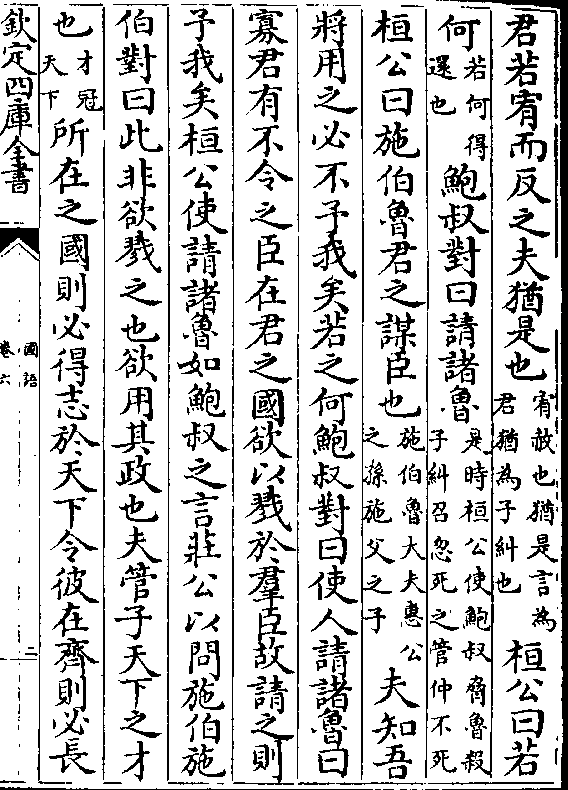 君若宥而反之夫猶是也宥赦也猶是言為君猶為子糾也桓公曰若
何若何得還也鮑叔對曰請諸魯是時桓公使鮑叔脅魯殺子糾召忽死之管仲不死
桓公曰施伯魯君之謀臣也施伯魯大夫惠公之孫施父之子夫知吾
將用之必不予我矣若之何鮑叔對曰使人請諸魯曰
寡君有不令之臣在君之國欲以戮於羣臣故請之則
予我矣桓公使請諸魯如鮑叔之言莊公以問施伯施
伯對曰此非欲戮之也欲用其政也夫管子天下之才
也才冠天下所在之國則必得志於天下令彼在齊則必長
欽定四庫全書
國語
卷六
二